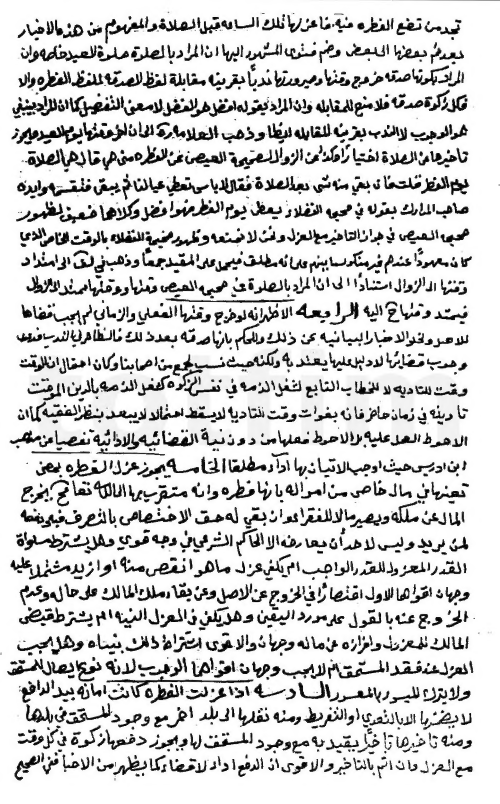 تجد من تضع الفطره عنه فاعزلها تلك الساعه قبل الصلاة والمفهوم من هذه الاخبار
بعد ضم بعضها الى بعض وضم فتوى المشهور اليها ان المراد بالصلاة صلوة العيد خاصه وان
المراد بكونها صدقه خروج وقتها وصيرورتها ندبا بقرينه مقابلة لفظ الصدقه للفظ الفطره والا
فكل زكوة صدقه فلا معنى للمقابله وان المراد بقوله افضل هو الفضل لا معنى التفضيل كما ان المراد بينبغي
هو الوجوب لا الندب بقرينه المقابله ايضا وذهب العلامه الى ان اخر وقتها يوم العيد فيجوز
تاخيرها عن الصلاة اختيارا
يوم الفطر قلت فان بقي منه شي بعد الصلاة فقال لا باس نعطي عيالنا ثم يبقى فنقسمه وايده
صاحب المدارك بقوله في صحيح الفضلاء يعطي يوم الفطر فهو افضل وكلاهما ضعيف لظهور
صحيح العيص في جواز التاخير مع العزل وظهور صحيحة الفضلاء بالوقت الخاص الذي
كان معهودا عندهم
وقتها الى الزوال استنادا الى ان المراد بالصلوة في صحيح العيص وقتها ووقتها يمتد للزوال
فيمتد وقتها الى اليه الرابعه الاظهر انه لو خرج وقتها الفعلي والزماني لم يجب قضاؤها
للاصل ولخلو الاخبار البيانيه عن ذلك والحكم بانها صدقه بعد ذلك فالظاهر في الندب
وجوب قضائها لا دليل عليها يعتد به ولكنه حيث نسب لجمع من اصحابنا وكان احتمال ان الوقت
وقت للتاديه لا للخطاب التابع لشغل الذمه في نفس الزكوه كشغل الذمه بالدين الموقت
تاديته في زمان خاص فانه بفوات وقت التاديه لا يسقط احتمالا لا يبعد بنظر الفقيه كما ان
الاحوط العمل عليه بل الاحوط فعلها من دون نية القضائيه والادائيه تفصيا عن مذهب
ابن ادريس حيث اوجب الاتيان بها اداء مطلقا الخامسه يجوز عزل الفطره بمعنى
تعينها في مال خاص من امواله بانها فطره وانه متقرب بها المالك
المال عن ملكه ويصير مالا للفقراء وان بقي له حق الاختصاص بالتصرف فيه ودفعه
لمن يريد وليس لاحد ان يعارضه الا الحاكم الشرعي في وجه قوي وهل يشترط مساواة
القدر المعزول للقدر الواجب ام يكفي عزل ما هو انقص منه او ازيد مشتملا عليه
وجهان اقواهما الاول اقتصارا في الخروج عن الاصل وعن بقاء ملك المالك على حاله وعدم
الخروج عنه بالقول على مورد اليقين وهل يكفي في العزل النيه ام يشترط قبض
المالك المعزول وافرازه عن ماله وجهان والاقوى اشتراط ذلك وهل يجب
العزل عند فقد المستحق ام لا يجب وجهان اقواهما الوجوب لانه نوع ايصال للمستحق
ولا يترك الميسور بالمعسور السادسه اذا عزلت الفطره كانت امانه بيد الدافع
لا يضمنها الا بالتعدي او التفريط ومنه نقلها الى بلد اخر مع وجود المستحق في بلدها
ومنه تاخيرها تاخيرا يعتد به مع وجود المستحق لها ويجوز دفعها زكوة في كل وقت
مع العزل وان اثم بالتاخير والاقوى ان الدفع اداء لا قضاء كما يظهر من الاخبار ففي الصحيح